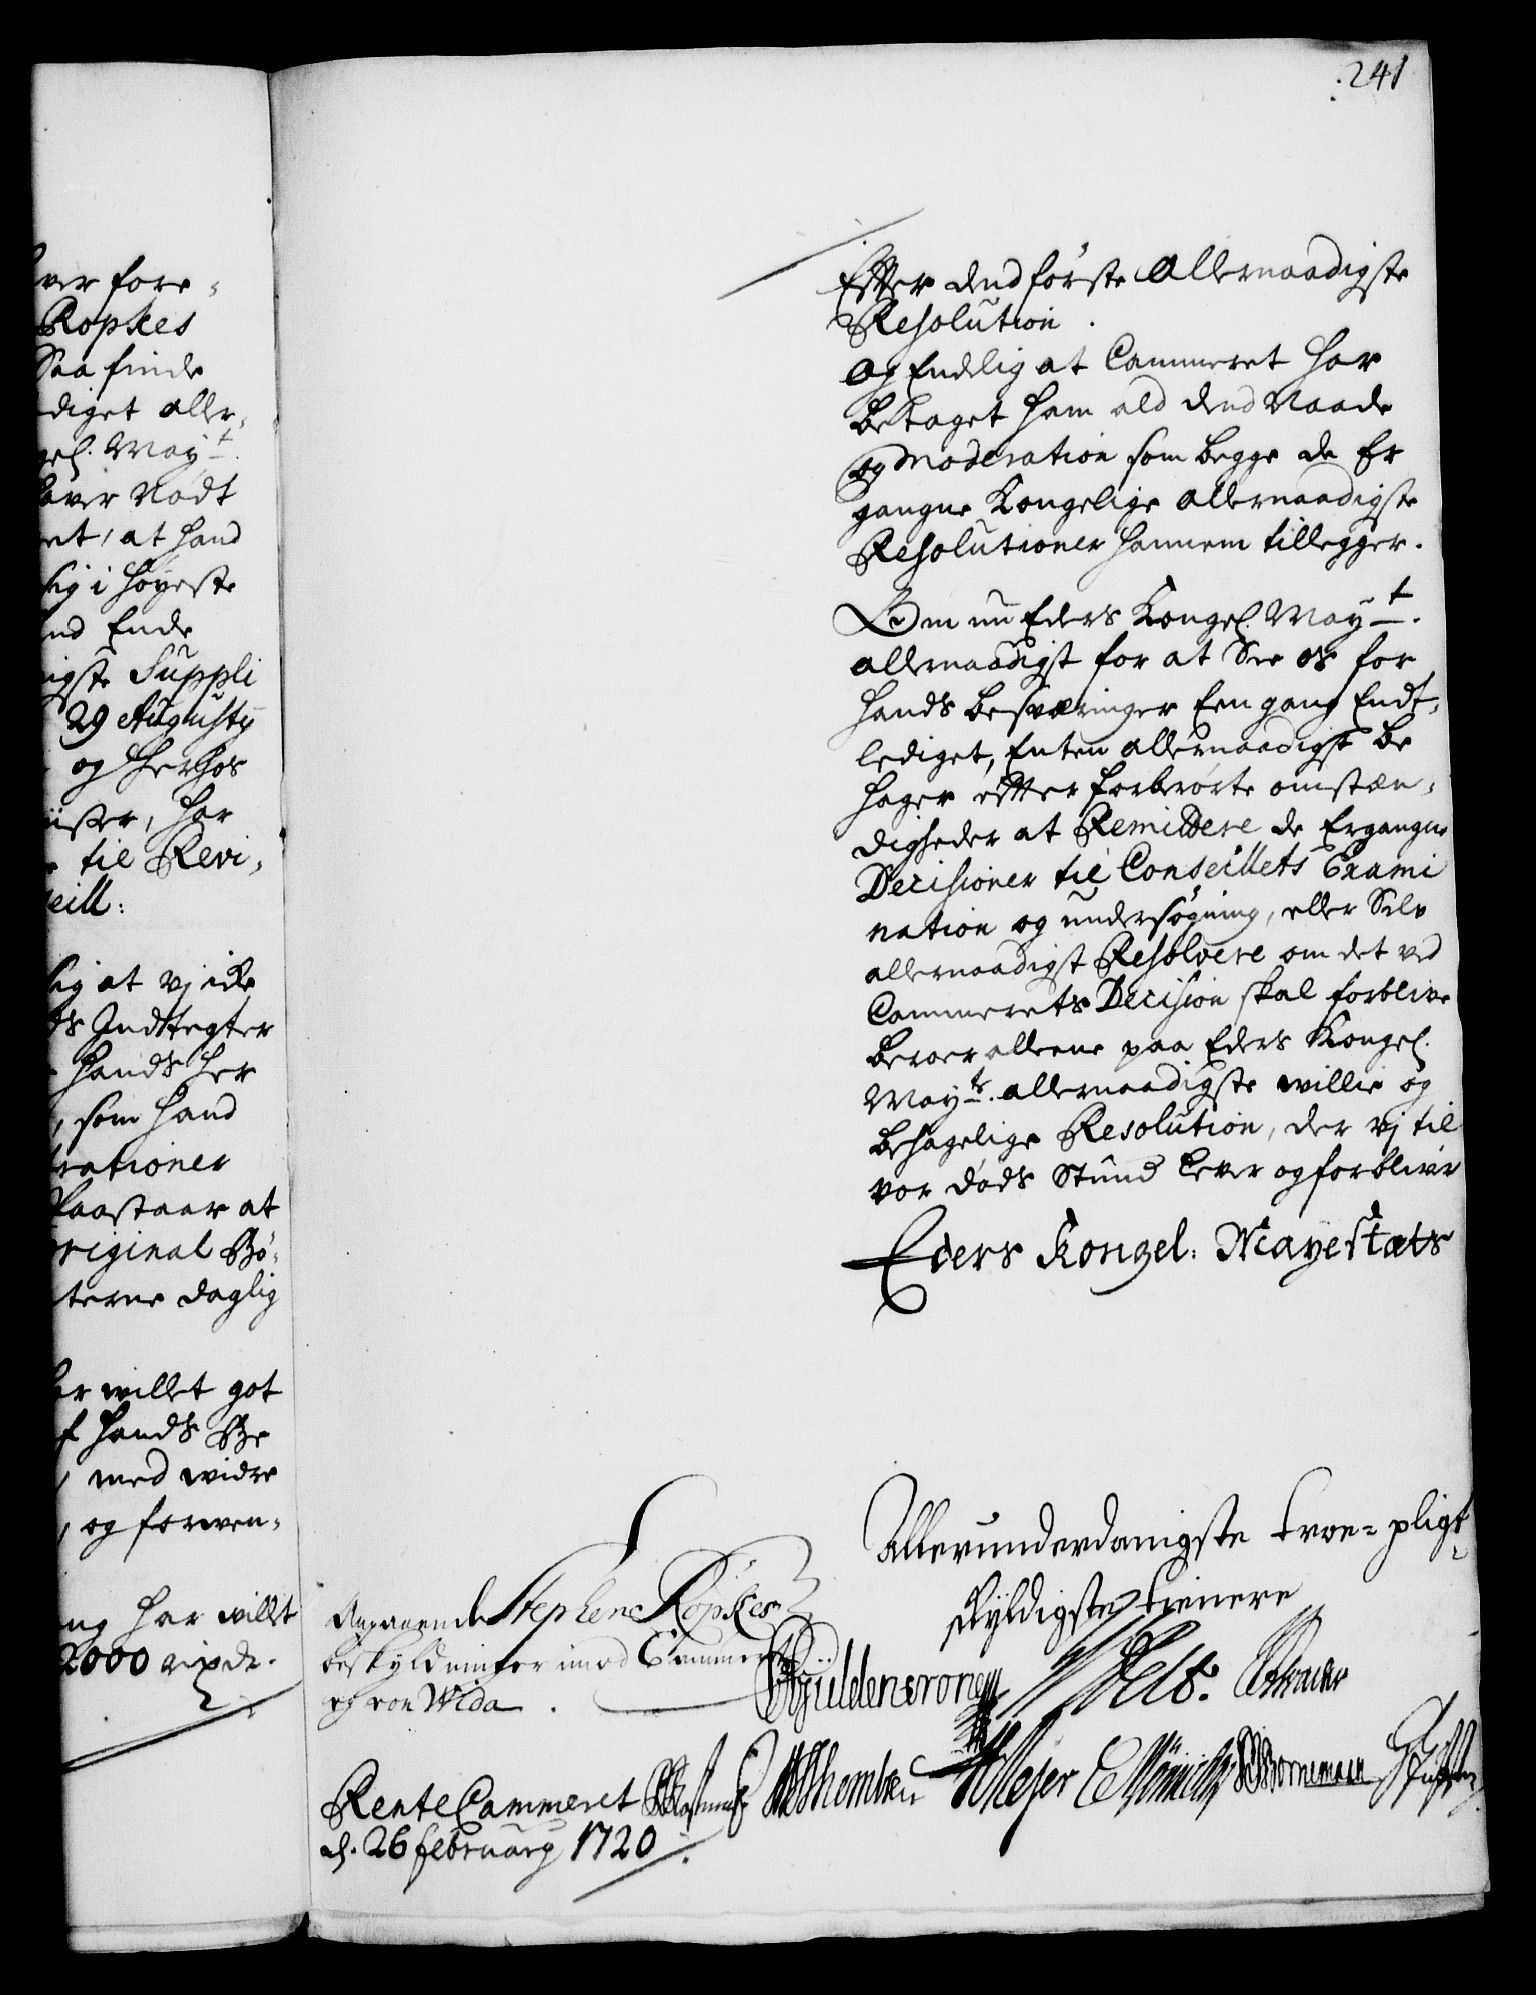 241
ver fore-
Ropkes
Saa finde
diget aller-
gel. May.t
haver Nødt
et, at hand
lig i høyeste
nd Ende
igste Suppli
29 Augusty
og herhos
iisser, har
til Revi-
seill:
lig at vj icke
ds Indtegter
hands her
, som hand
trationer
Paastaar at
riginal Bø-
terne daglig
har willet got
af hands Be
, med widre
, og forwen-
ng har willet
2000 rixdr.
Effter dend første Allernaadigste
Resolution.
Og Endelig at Cammeret har
betaget ham ald dend Naade
og Moderation som begge de Er
gangne Kongelige allernaadigste
Resolutioner hannem tillegger.
Om nu Eders Kongel. May.t
allernaadigst for at See os for
hands besværinger Een gang Endt-
lediget, Enten allernaadigst be
hager effter forberørte omstæn-
digheder at Remittere de Ergangne
Decisioner til Conseillets Exami
nation og undersøgning, eller Selv
allernaadigst Resolvere om det ved
Cammerets Decision skal forblive
beroer alleene paa Eders Kongel.
May.ts allernaadigste willie og
behagelige Resolution, der vj til
vor døds Stund lever og forblivr
Eders Kongel: Mayestæts
Allerunderdanigste troe-pligt-
skyldigste tienere
Angaaende Stephen Röpkes
beskyldninger imod Cammeret
og von Wida.
Gyldencrone
Rente Cammeret
Mejer
Bornemann
d. 26 February 1720